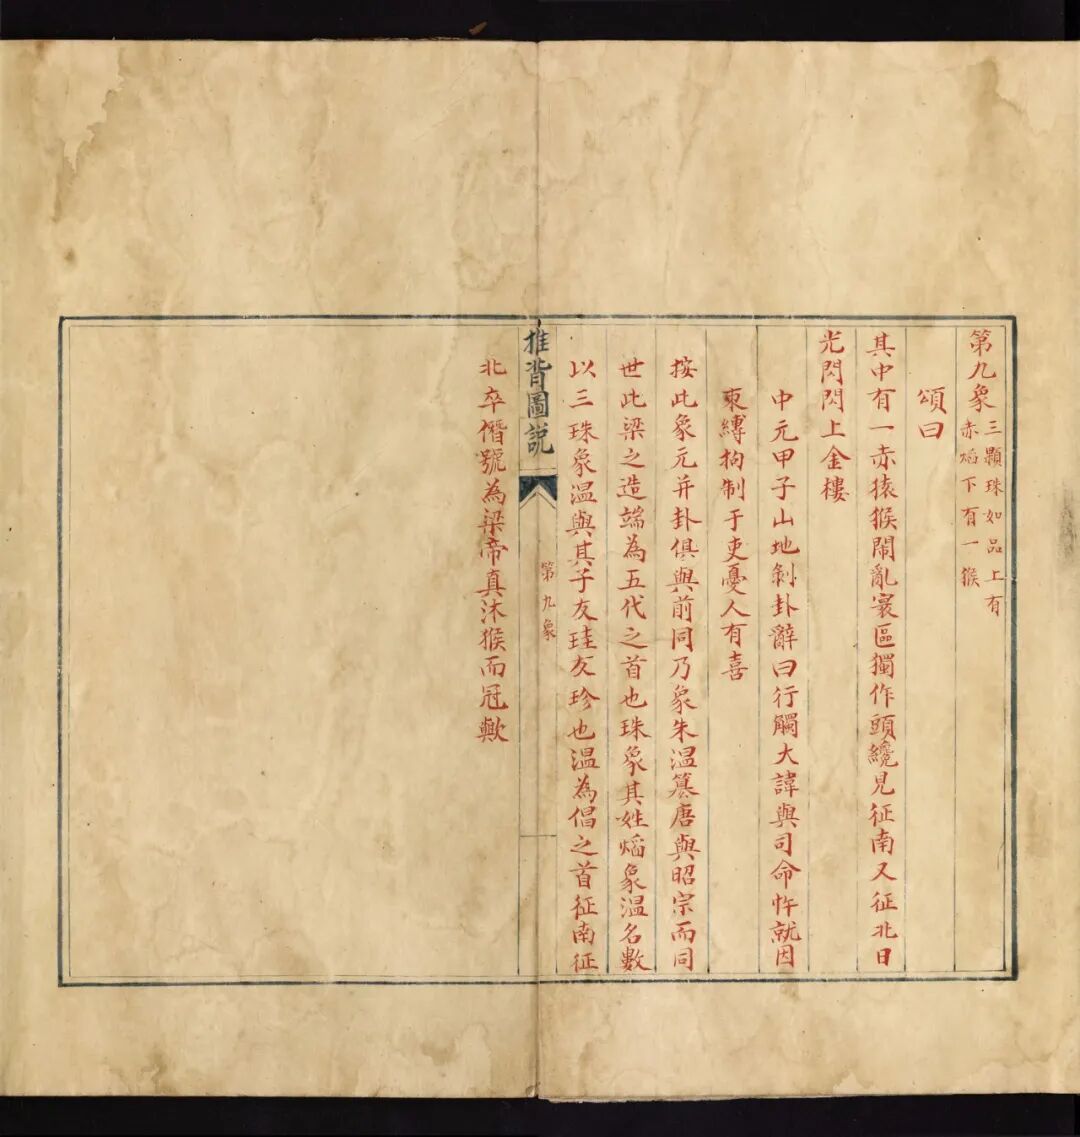 第九象
三顆珠如品上有
赤熖下有一猴
頌曰
其中有一赤猿猴鬧亂寰區獨作頭纔見征南又征北日
光閃閃上金樓
中元甲子山地剝卦辭曰行觸大諱與司命忤就因
束縛拘制于吏憂人有喜
按此象元并卦俱與前同乃象朱溫簒唐與昭宗而同
世此梁之造端為五代之首也珠象其姓熖象溫名數
以三珠象溫與其子友珪友珍也溫為倡之首征南征
推背圖說
第九象
北卒僭號為梁帝真沐猴而冠歟